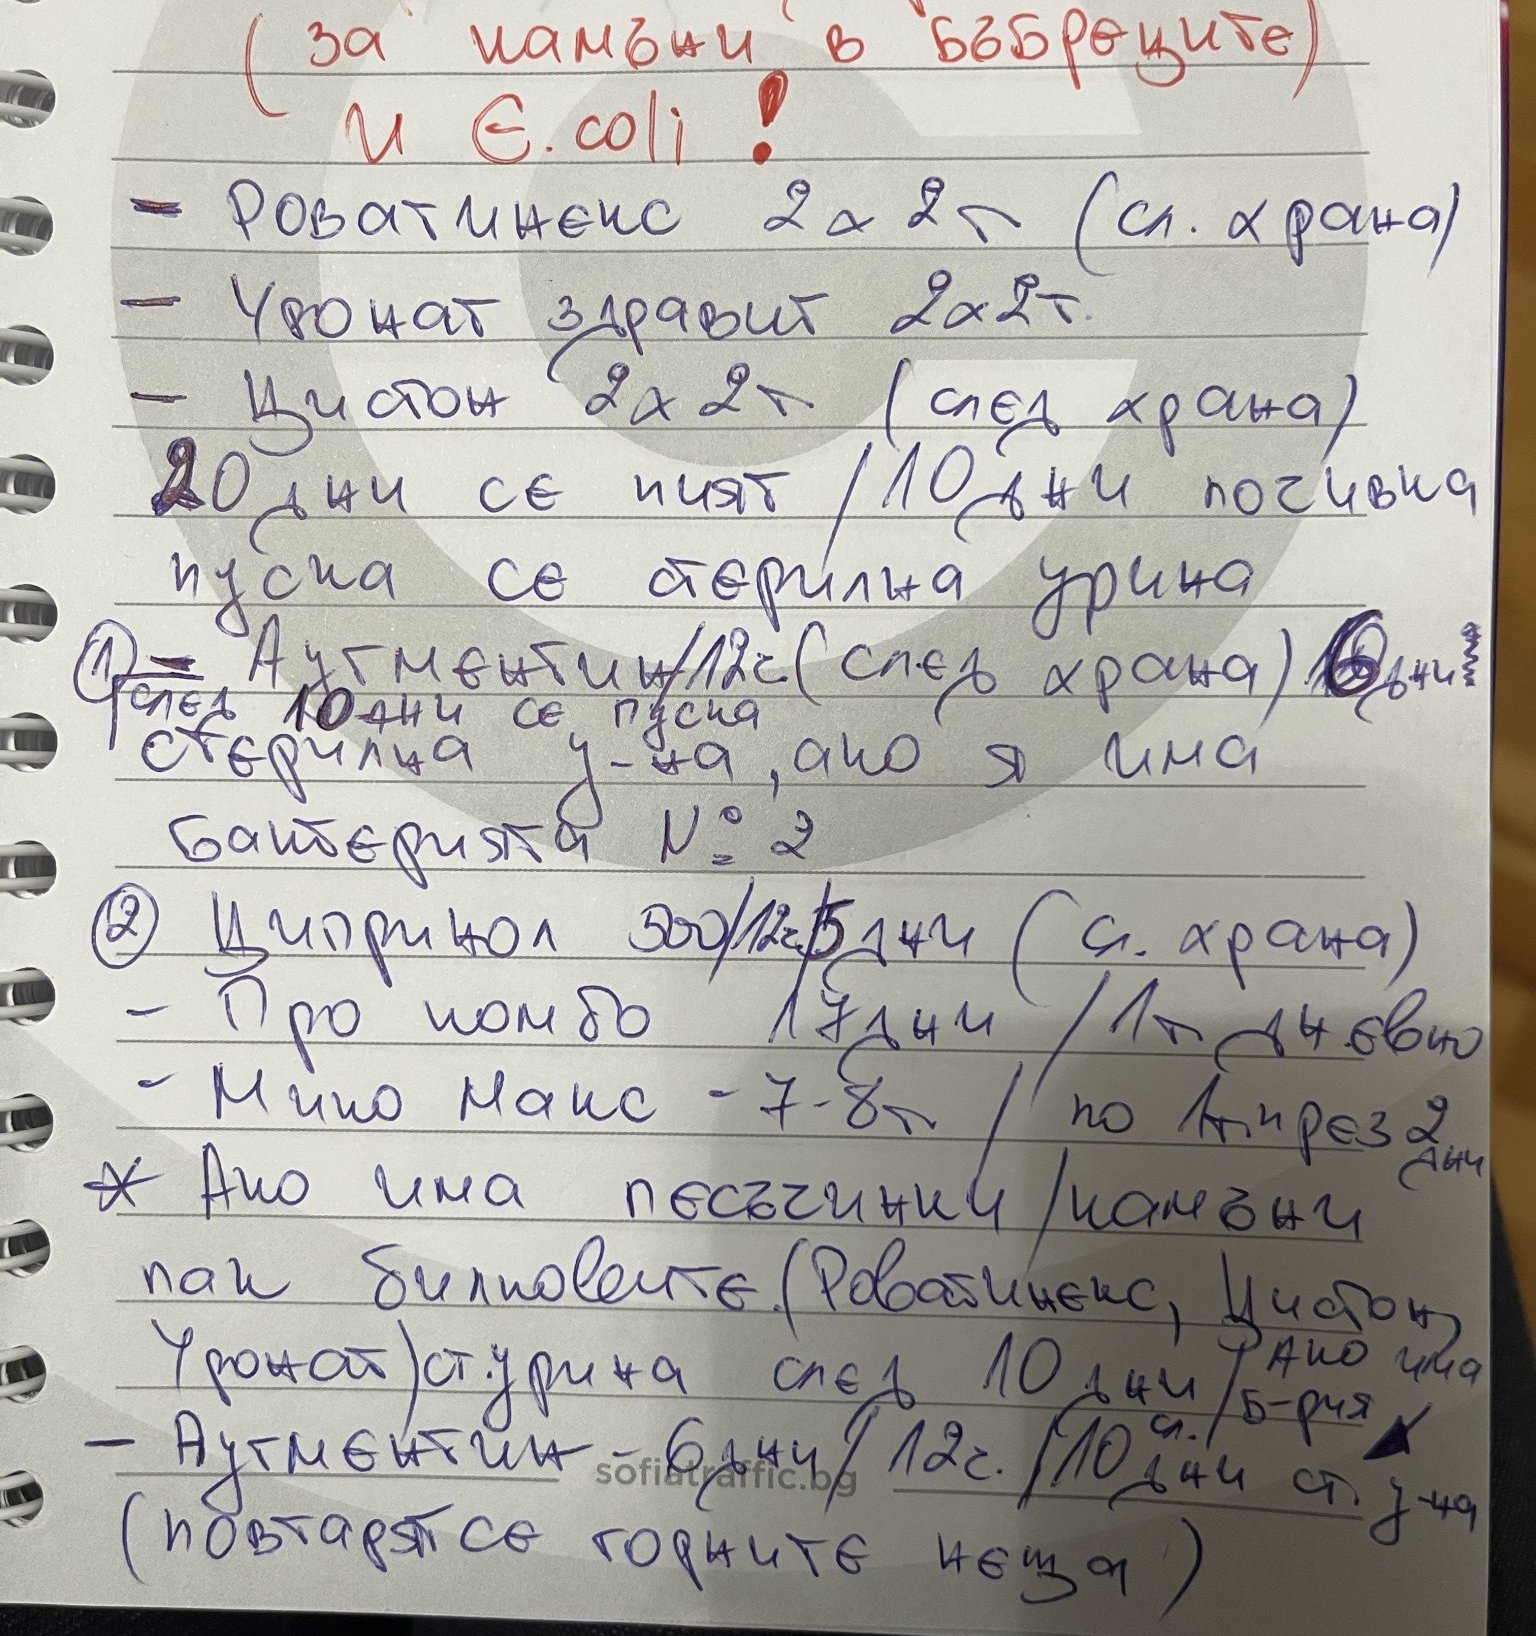 (за камъни в бъбреците)
и E. coli !
- Роватинекс 2x2т (сл. храна)
- Уронат здравит 2x2т.
- Цистон 2x2т. (след храна)
20 дни се пият / 10 дни почивка
пуска се стерилна урина
① - Аугментин/12ч (след храна) 6 дни
след 10 дни се пуска
стерилна у-на, ако я има
бактерията № 2
② Ципринол 500/12ч./5 дни (сл. храна)
- Про комбо 17 дни / 1т дневно
- Мико Макс - 7-8т / по 1т. през 2 дни
* Ако има песъчинки/камъни
пак билковите (Роватинекс, Цистон,
Уронат) ст. урина след 10 дни / Ако има
б-рия
- Аугментин - 6 дни / 12ч. / сл. 10 дни ст. у-на
sofiatraffic.bg
(повтарят се горните неща)